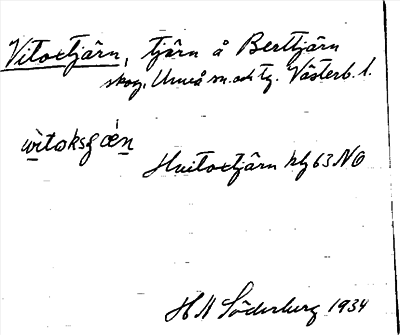 Vitoxtjärn, tjärn å Berttjärn
skog, Umeå sn. och tg. Västerb. l.
Hvitoxtjärn hlg 63 NO
H A Söderberg 1934